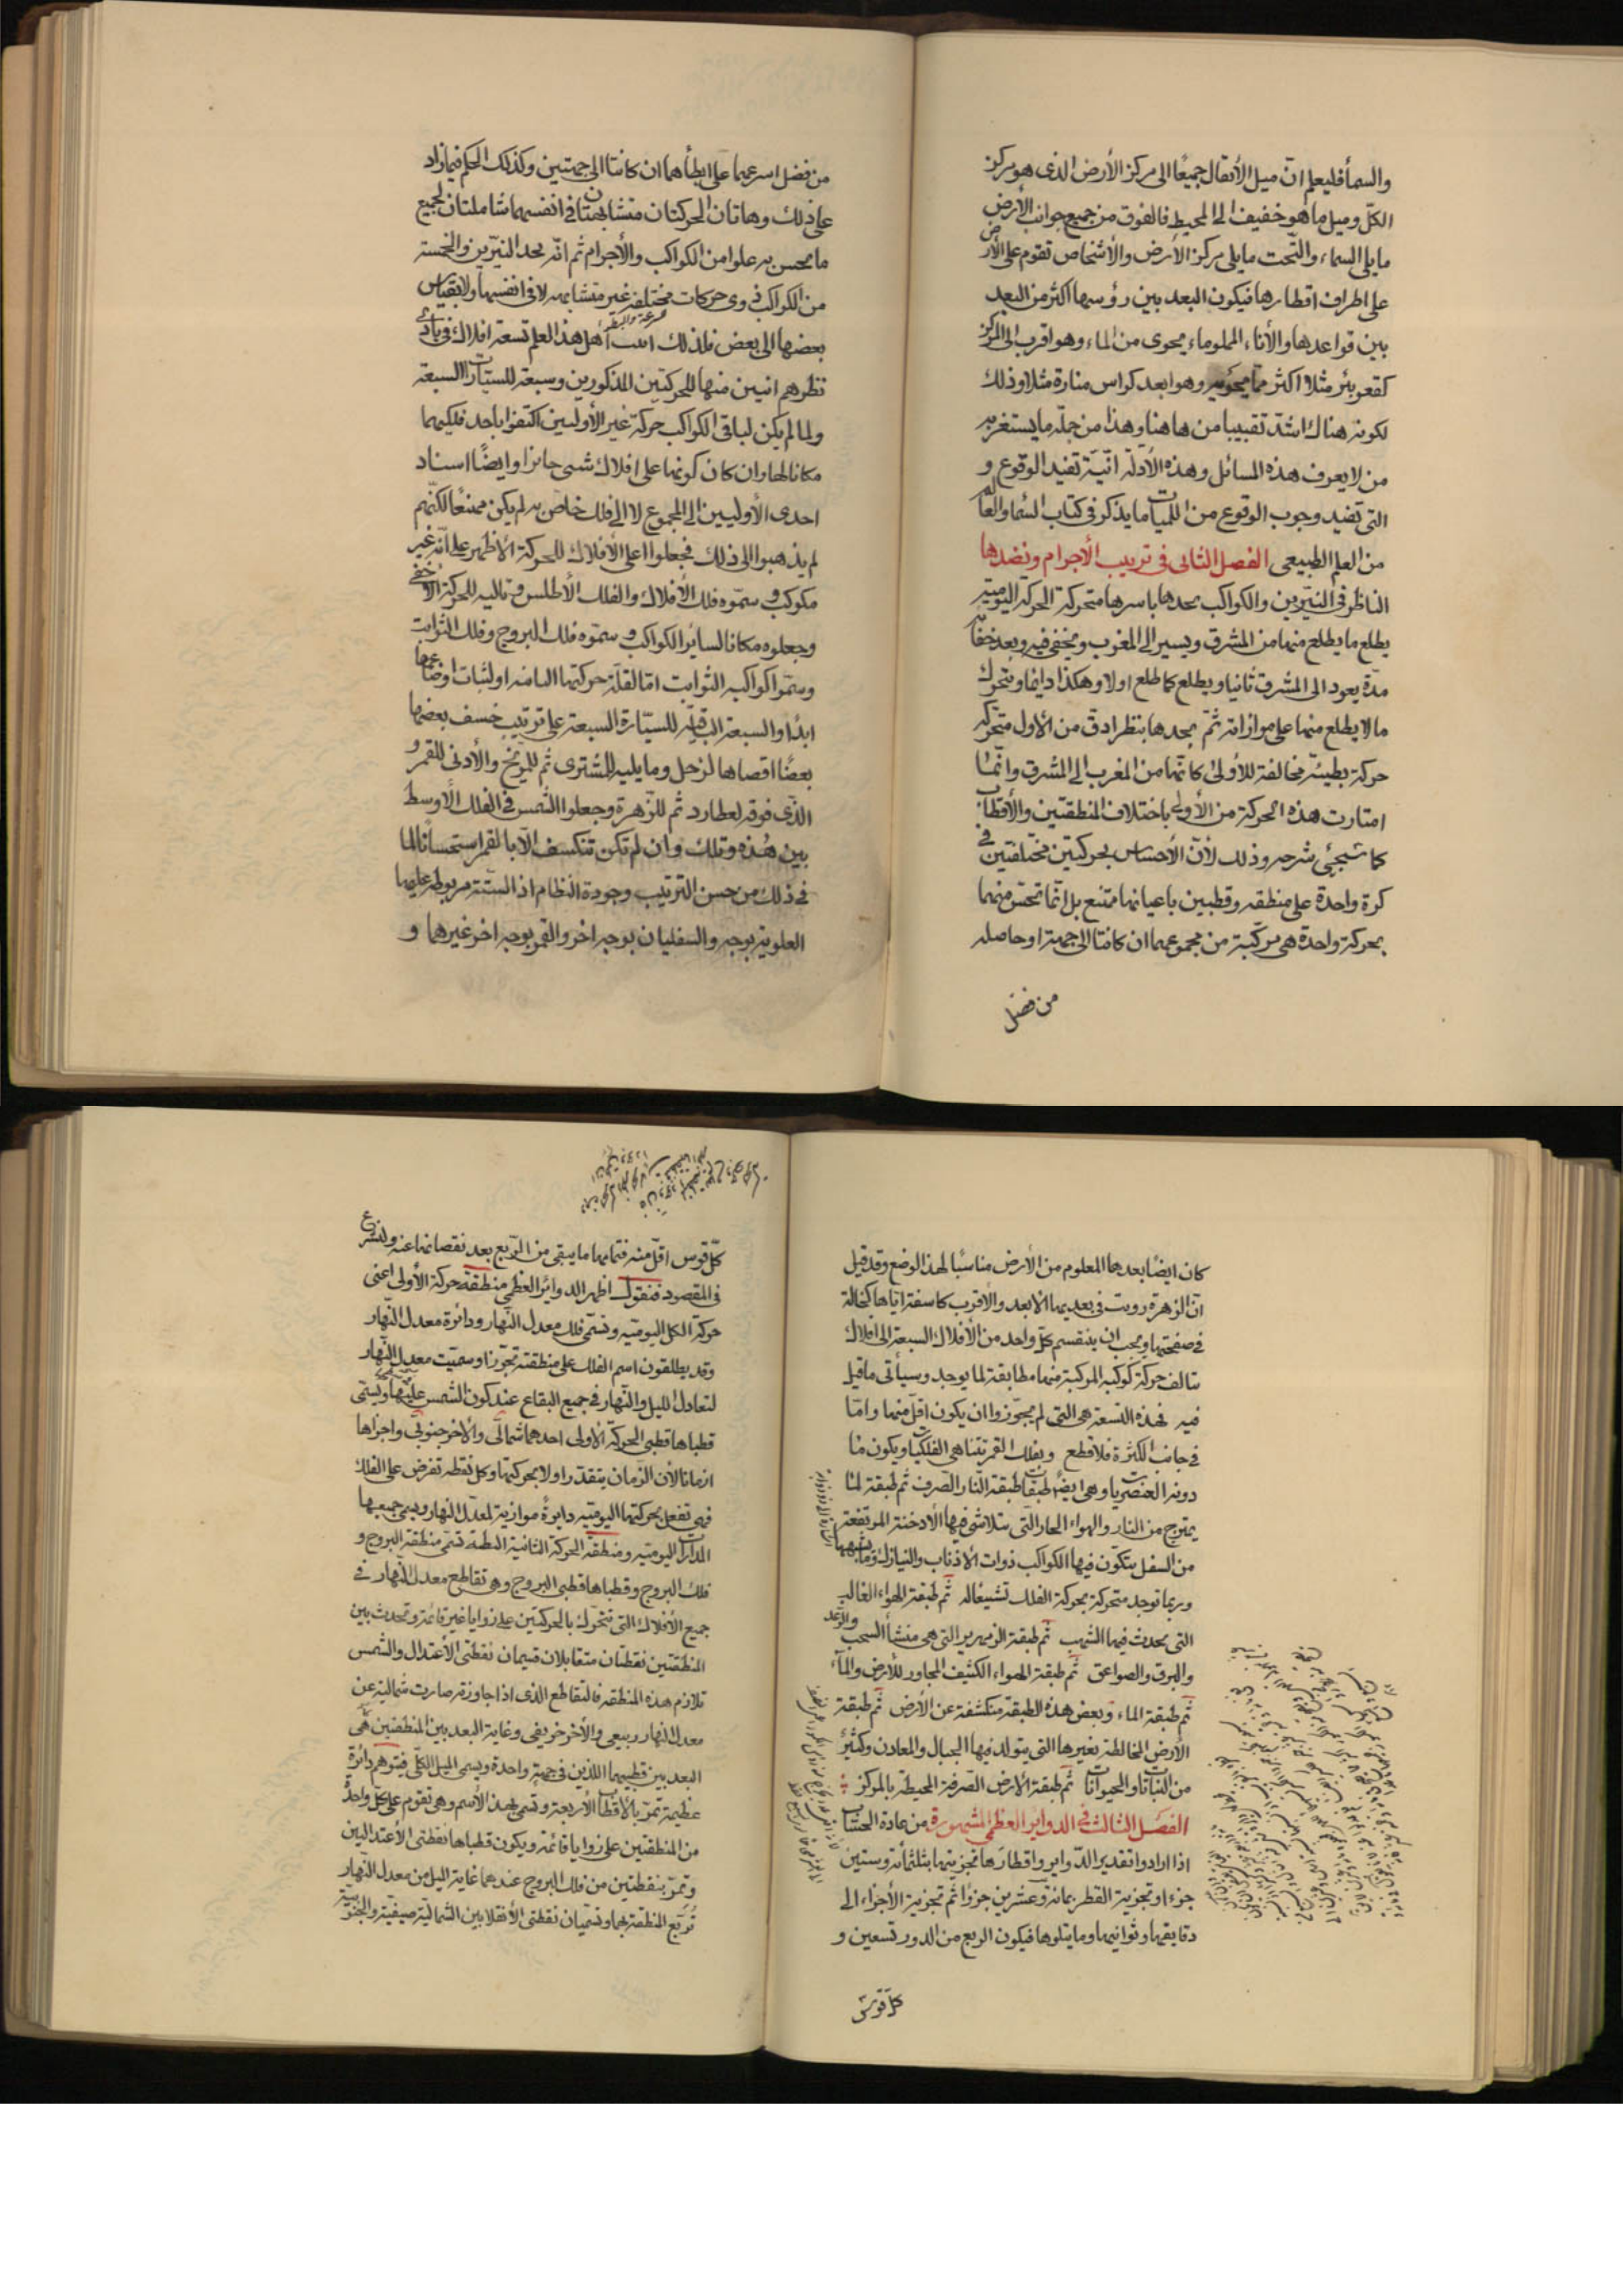 والسمأ فليعلم ان ميل الأثقال جميعًا الى مركز الأرض الذى هو مركز
الكلّ وميل ما هو خفيف الى المحيط فالفوق من جميع جوانب الأرض
ما يلى السماء والتّحت ما يلى مركز الأرض والأشخاص تقوم على الأرض
على اطراف اقطارها فيكون البعد بين رؤسها اكثر من البعد
بين قواعدها والأناء المملو ماء يحوى من الماء وهو اقرب الى المركز
كقعر بئر مثلا اكثر مما يحويه وهو ابعد كراس منارة مثلا وذلك
لكونه هناك اشدّ تقبيبا من هاهنا وهذا من جملة ما يستغربه
من لا يعرف هذه المسائل وهذه الأدلّة انّيّة تفيد الوقوع و
التى تفيد وجوب الوقوع من اللميات ما يذكر فى كتاب السّما والعالم
من العلم الطبيعى الفصل الثانى فى ترتيب الأجرام ونضدها
الناظر فى النيّرين والكواكب يجدها باسرها متحركة الحركة اليوميّة
يطلع ما يطلع منها من المشرق ويسير الى المغرب ويخفى فيه وبعد خفائه
مدّة يعود الى المشرق ثانيا ويطلع كما طلع اولا وهكذا دايما ويتحرك
ما لا يطلع منها على موازاته ثمّ يجدها بنظر ادقّ من الأول متحركة
حركة بطيئة مخالفة للأولى كانّها من المغرب الى المشرق وانّما
امتازت هذه الحركة من الأولى باختلاف المنطقتين والأقطاب
كما سيجئ شرحه وذلك لأنّ الأحساس بحركتين مختلفتين فى
كرة واحدة على منطقة وقطبين باعيانها ممتنع بل انّما تحسّ منهما
بحركة واحدة هى مركّبة من مجموعهما ان كانتا الى جهة او حاصله
من فضل
من فضل اسرعهما على ابطأهما ان كانتا الى جهتين وكذلك الحكم فيما زاد
على ذلك وهاتان الحركتان متشابهتان فى انفسهما شاملتان لجميع
ما يحسّ به علوا من الكواكب والأجرام ثم انّه يجد النيّرين والخمسة
من الكواكب ذوى حركات مختلفة غير متشابهه لا فى انفسها ولا بقياس
بعضها الى بعض فلذلك اثبت اهل هذا العلم تسعة افلاك فى بادى
نظرهم اثنين منها للحركتين المذكورين وسبعة للسيّارات السبعة
ولما لم يكن لباقى الكواكب حركة غير الأوليين اكتفوا باحد فلكيهما
مكانا لها وان كان كونها على افلاك شتى جائزا وايضًا اسناد
احدى الأوليين الى المجموع لا الى فلك خاصّ به لم يكن ممتنعًا لكنّهم
لم يذهبوا الى ذلك فجعلوا اعلى الأفلاك للحركة الأظهر على انّه غير
مكوكب وسمّوه فلك الأفلاك والفلك الأطلس وتاليه للحركة الأخفى
وجعلوه مكانا لسائر الكواكب وسمّوه فلك البروج وفلك الثوابت
وسمّوا كواكبه الثوابت امّا لقلّة حركتها الثامنه او لثبات اوضاعها
ابدًا والسبعة الباقية للسيّارة السبعة على ترتيب خسف بعضها
بعضًا اقصاها لزحل وما يليه للمشترى ثم للمرّيخ والأدنى للقمر و
الذى فوقه لعطارد ثم للزّهرة وجعلوا الشمس فى الفلك الأوسط
بين هذه وتلك وان لم تكن تنكسف الّا بالقمر استحسانا لما
فى ذلك من حسن الترتيب وجودة النظام اذ الستّة مربوطة عليها
العلوية بوجه والسفليان بوجه اخر والقمر بوجه اخر غيرهما و
كان ايضًا بعدها المعلوم من الأرض مناسبًا لهذا الوضع وقد قيل
انّ الزهرة رويت فى بعديها الأبعد والأقرب كاسفة ايّاها كخالة
فى صفحتها ويجب ان ينقسم كلّ واحد من الأفلاك السبعة الى افلاك
يتالف حركة كوكبه المركبة منها مطابقة لما يوجد وسيأتى ما قيل
فيه فهذه التسعة هى التى لم يجوّزوا ان يكون اقلّ منها وامّا
فى جانب الكثرة فلا قطع وبفلك القمر تتناهى الفلكيات ويكون ما
دونه العنصريات وهى ايضًا طبقات طبقة النار الصرف ثم طبقة لما
يمتزج من النار والهواء الحار التى يتلاشى فيها الأدخنة المرتفعة
من السفل يتكوّن فيها الكواكب ذوات الأذناب والنيازك وما يشبهها
وربما توجد متحركة بحركة الفلك تشييعًا له ثم طبقة الهواء الغالب
التى يحدث فيها الشهب ثم طبقة الزمهرير التى هى منشأ السحب والرّعد
والبرق والصواعق ثم طبقة الهواء الكثيف المجاور للأرض والمآء
ثم طبقة الماء وبعض هذه الطبقة منكشفة عن الأرض ثم طبقة
الأرض المخالطة بغيرها التى يتولد فيها الجبال والمعادن وكثير
من النباتات والحيوانات ثم طبقة الارض الصرفة المحيطة بالمركز
الفصل الثالث فى الدواير العظمى المشهورة من عادة الحسّاب
اذا ارادوا تقدير الدواير واقطارها تجزيتها بثلثمأئة وستين
جزءا وتجزية القطر بمائة وعشرين جزءًا ثم تجزية الأجزاء الى
دقايقها وثوانيها وما يتلوها فيكون الربع من الدور تسعين و
كلّ قوس
كلّ قوس اقلّ منه فتمامها ما يبقى من الرّبع بعد نقصانها عنه ولنشرع
فى المقصود فنقول اظهر الدواير العظمى منطقة حركة الأولى اعنى
حركة الكل اليوميه وتسمّى فلك معدل النّهار ودائرة معدل النّهار
وقد يطلقون اسم الفلك على منطقته تجوّزا وسمّيت معدل النّهار
لتعادل الليل والنّهار فى جميع البقاع عند كون الشمس عليها ويسمّى
قطباها قطبى الحركة الأولى احدهما شمالى والأخر جنوبى واجزاها
ازمانا لأن الزّمان يتقدّر اولا بحركتها وكل نقطة تفرض على الفلك
فهى تفعل بحركتها اليوميّه دايرةً موازية لمعدل النهار ويسمى جميعها
المدارات اليوميه ومنطقة الحركة الثانية البطيئة تسمّى منطقة البروج و
فلك البروج وقطباها قطبى البروج وهى تقاطع معدل النّهار فى
جميع الأفلاك التى تتحرّك بالحركتين على زوايا غير قائمة وتحدث بين
المنطقتين نقطتان متقابلان تسميان نقطتى الأعتدال والشمس
تلازم هذه المنطقة فالتقاطع الذى اذا جاوزته صارت شمالية عن
معدل النهار ربيعى والأخر خريفى وغاية البعد بين المنطقتين هى
البعد بين قطبيهما اللذين فى جهة واحدة ويسمى الميل الكلّى فيتوهم دائرة
عظيمة تمرّ بالأقطاب الأربعة وتسمى بهذا الأسم وهى تقوم على كل واحدة
من المنطقتين على زوايا قائمة ويكون قطباها نقطتى الأعتدالين
وتمرّ بنقطتين من فلك البروج عندهما غاية الميل من معدل النّهار
تُربّع المنطقة بهما وتسمّيان نقطتى الأنقلابين الشمالية صيفية والجنوبية